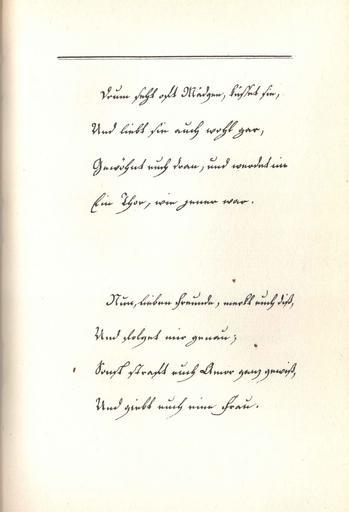 Drum seht oft Mädgen, küsset sie,
Und liebt sie auch wohl gar,
Gewöhnt euch dran, und werdet nie
Ein Thor, wie jener war.
Nun, lieben Freunde, merkt euch diß,
Und folget mir genau;
Sonst straft euch Amor ganz gewiß,
Und giebt euch eine Frau.